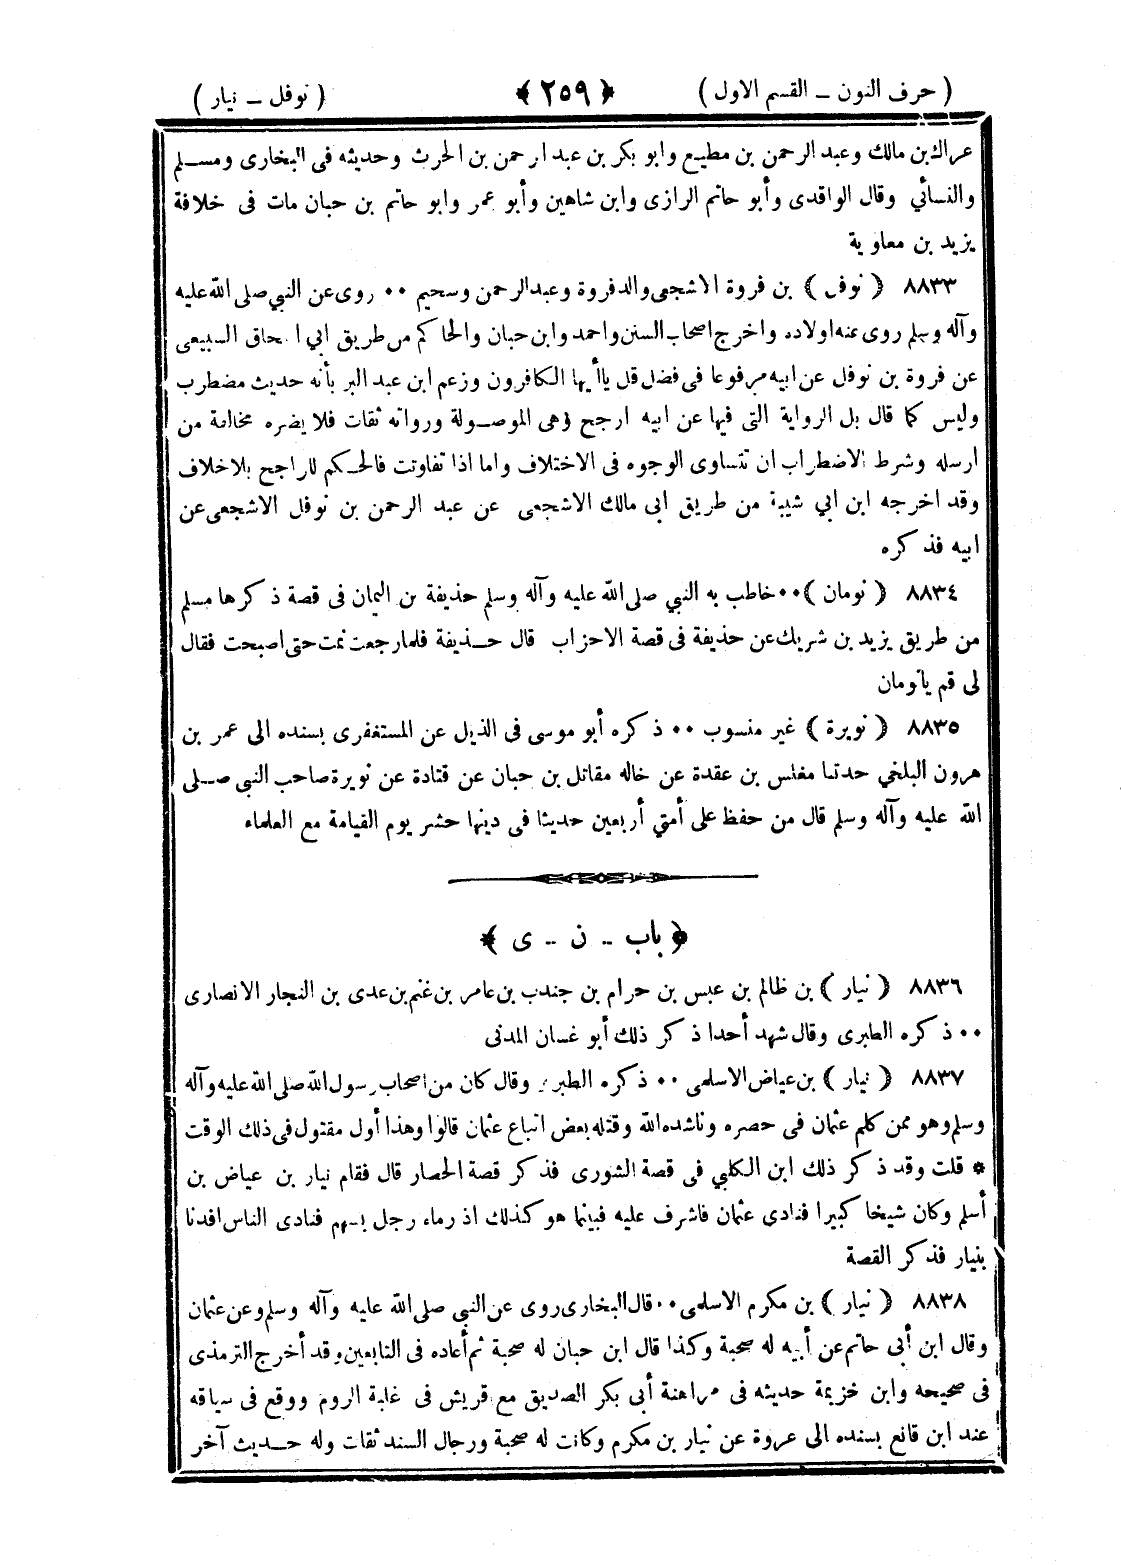 ( حرف النون ــ القسم الاول ) ﴿ ٢٥٩ ﴾ ( نوفل ــ نيار )
عراك بن مالك وعبد الرحمن بن مطيع وابو بكر بن عبد الرحمن بن الحرث وحديثه فى البخارى ومسلم
والنسائي وقال الواقدى وأبو حاتم الرازى وابن شاهين وأبو عمر وابو حاتم بن حبان مات فى خلافة
يزيد بن معاوية
٨٨٣٣ ( نوفل ) بن فروة الاشجعى والد فروة وعبد الرحمن وسحيم ٠٠ روى عن النبي صلى الله عليه
وآله وسلم روى عنه اولاده واخرج اصحاب السنن واحمد وابن حبان والحاكم من طريق ابي اسحاق السبيعى
عن فروة بن نوفل عن ابيه مرفوعا فى فضل قل ياأيها الكافرون وزعم ابن عبد البر بأنه حديث مضطرب
وليس كما قال بل الرواية التى فيها عن ابيه ارجح وهى الموصولة ورواته ثقات فلا يضره مخالفة من
ارسله وشرط الاضطراب ان تتساوى الوجوه فى الاختلاف واما اذا تفاوتت فالحكم للراجح بلاخلاف
وقد اخرجه ابن ابي شيبة من طريق ابى مالك الاشجعى عن عبد الرحمن بن نوفل الاشجعى عن
ابيه فذكره
٨٨٣٤ ( نومان ) ٠٠ خاطب به النبي صلى الله عليه وآله وسلم حذيفة بن اليمان فى قصة ذكرها مسلم
من طريق يزيد بن شريك عن حذيفة فى قصة الاحزاب قال حذيفة فلما رجعت نمت حتى اصبحت فقال
لى قم يانومان
٨٨٣٥ ( نويرة ) غير منسوب ٠٠ ذكره أبو موسى فى الذيل عن المستغفرى بسنده الى عمر بن
هرون البلخي حدثنا مغلس بن عقدة عن خاله مقاتل بن حبان عن قتادة عن نويرة صاحب النبي صلى
الله عليه وآله وسلم قال من حفظ على أمتي أربعين حديثا فى دينها حشر يوم القيامة مع العلماء
﴿ باب ــ ن ــ ى ﴾
٨٨٣٦ ( نيار ) بن ظالم بن عبس بن حرام بن جندب بن عامر بن غنم بن عدى بن النجار الانصارى
٠٠ ذكره الطبرى وقال شهد أحدا ذكر ذلك أبو غسان المدنى
٨٨٣٧ ( نيار ) بن عياض الاسلمى ٠٠ ذكره الطبرى وقال كان من اصحاب رسول الله صلى الله عليه وآله
وسلم وهو ممن كلم عثمان فى حصره وناشده الله وقتله بعض اتباع عثمان قالوا وهذا أول مقتول فى ذلك الوقت
* قلت وقد ذكر ذلك ابن الكلبي فى قصة الشورى فذكر قصة الحصار قال فقام نيار بن عياض بن
أسلم وكان شيخا كبيرا فنادى عثمان فاشرف عليه فبينما هو كذلك اذ رماه رجل بسهم فنادى الناس افدنا
بنيار فذكر القصة
٨٨٣٨ ( نيار ) بن مكرم الاسلمى ٠٠ قال البخارى روى عن النبي صلى الله عليه وآله وسلم وعن عثمان
وقال ابن أبى حاتم عن أبيه له صحبة وكذا قال ابن حبان له صحبة ثم أعاده فى التابعين وقد أخرج الترمذى
فى صحيحه وابن خزيمة حديثه فى مراهنة أبى بكر الصديق مع قريش فى غلبة الروم ووقع فى سياقه
عند ابن قانع بسنده الى عروة عن نيار بن مكرم وكانت له صحبة ورجال السند ثقات وله حديث آخر